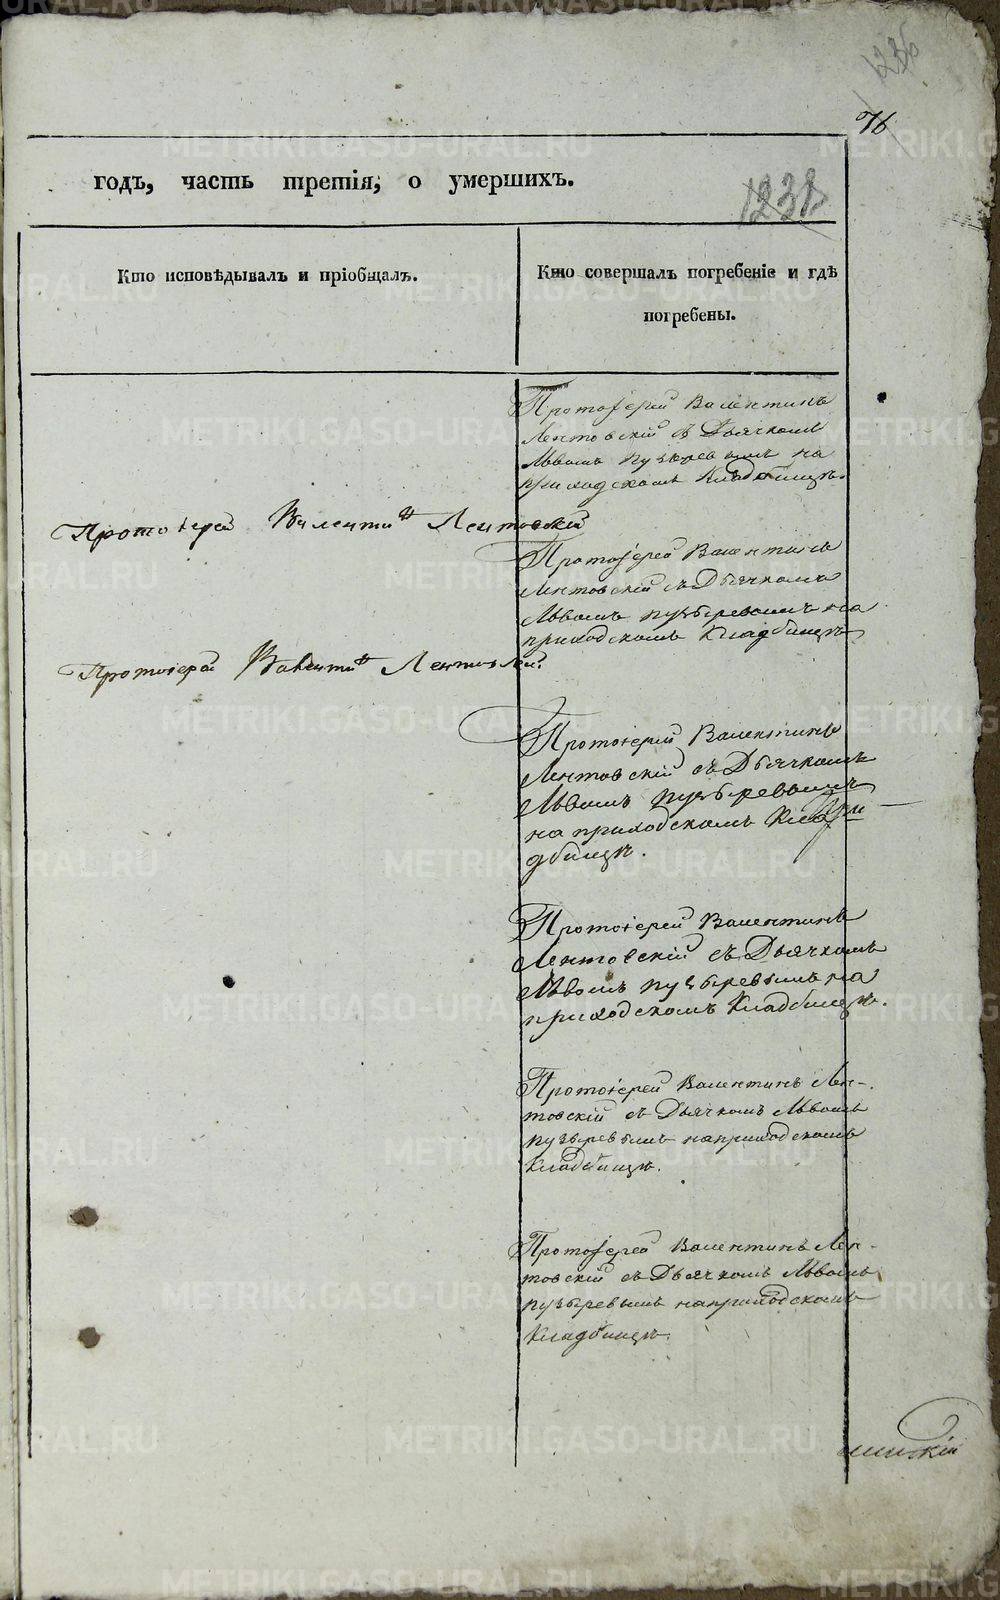 76
годъ, часть третія, о умершихъ.
Кто исповѣдывалъ и пріобщалъ.
Кто совершалъ погребеніе и гдѣ
погребены.
Протоіерей Валентинъ
Лентовскій съ Дьячкомъ
Львомъ Пузыревымъ на
приходскомъ Кладбищѣ.
Протоіерей Валентинъ Лентовскій
Протоіерей Валентинъ
Лентовскій съ Дьячкомъ
Львомъ Пузыревымъ на
приходскомъ Кладбищѣ
Протоіерей Валентинъ Лентовскій
Протоіерей Валентинъ
Лентовскій съ Дьячкомъ
Львомъ Пузыревымъ
на приходскомъ Кла
дбищѣ.
Протоіерей Валентинъ
Лентовскій съ Дьячкомъ
Львомъ Пузыревымъ на
приходскомъ Кладбищѣ.
Протоіерей Валентинъ Лен-
товскій съ Дьячкомъ Львомъ
Пузыревымъ на приходскомъ
Кладбищѣ.
Протоіерей Валентинъ Лен-
товскій съ Дьячкомъ Львомъ
Пузыревымъ на приходскомъ
Кладбищѣ.
METRIKI.GASO-URAL.RU